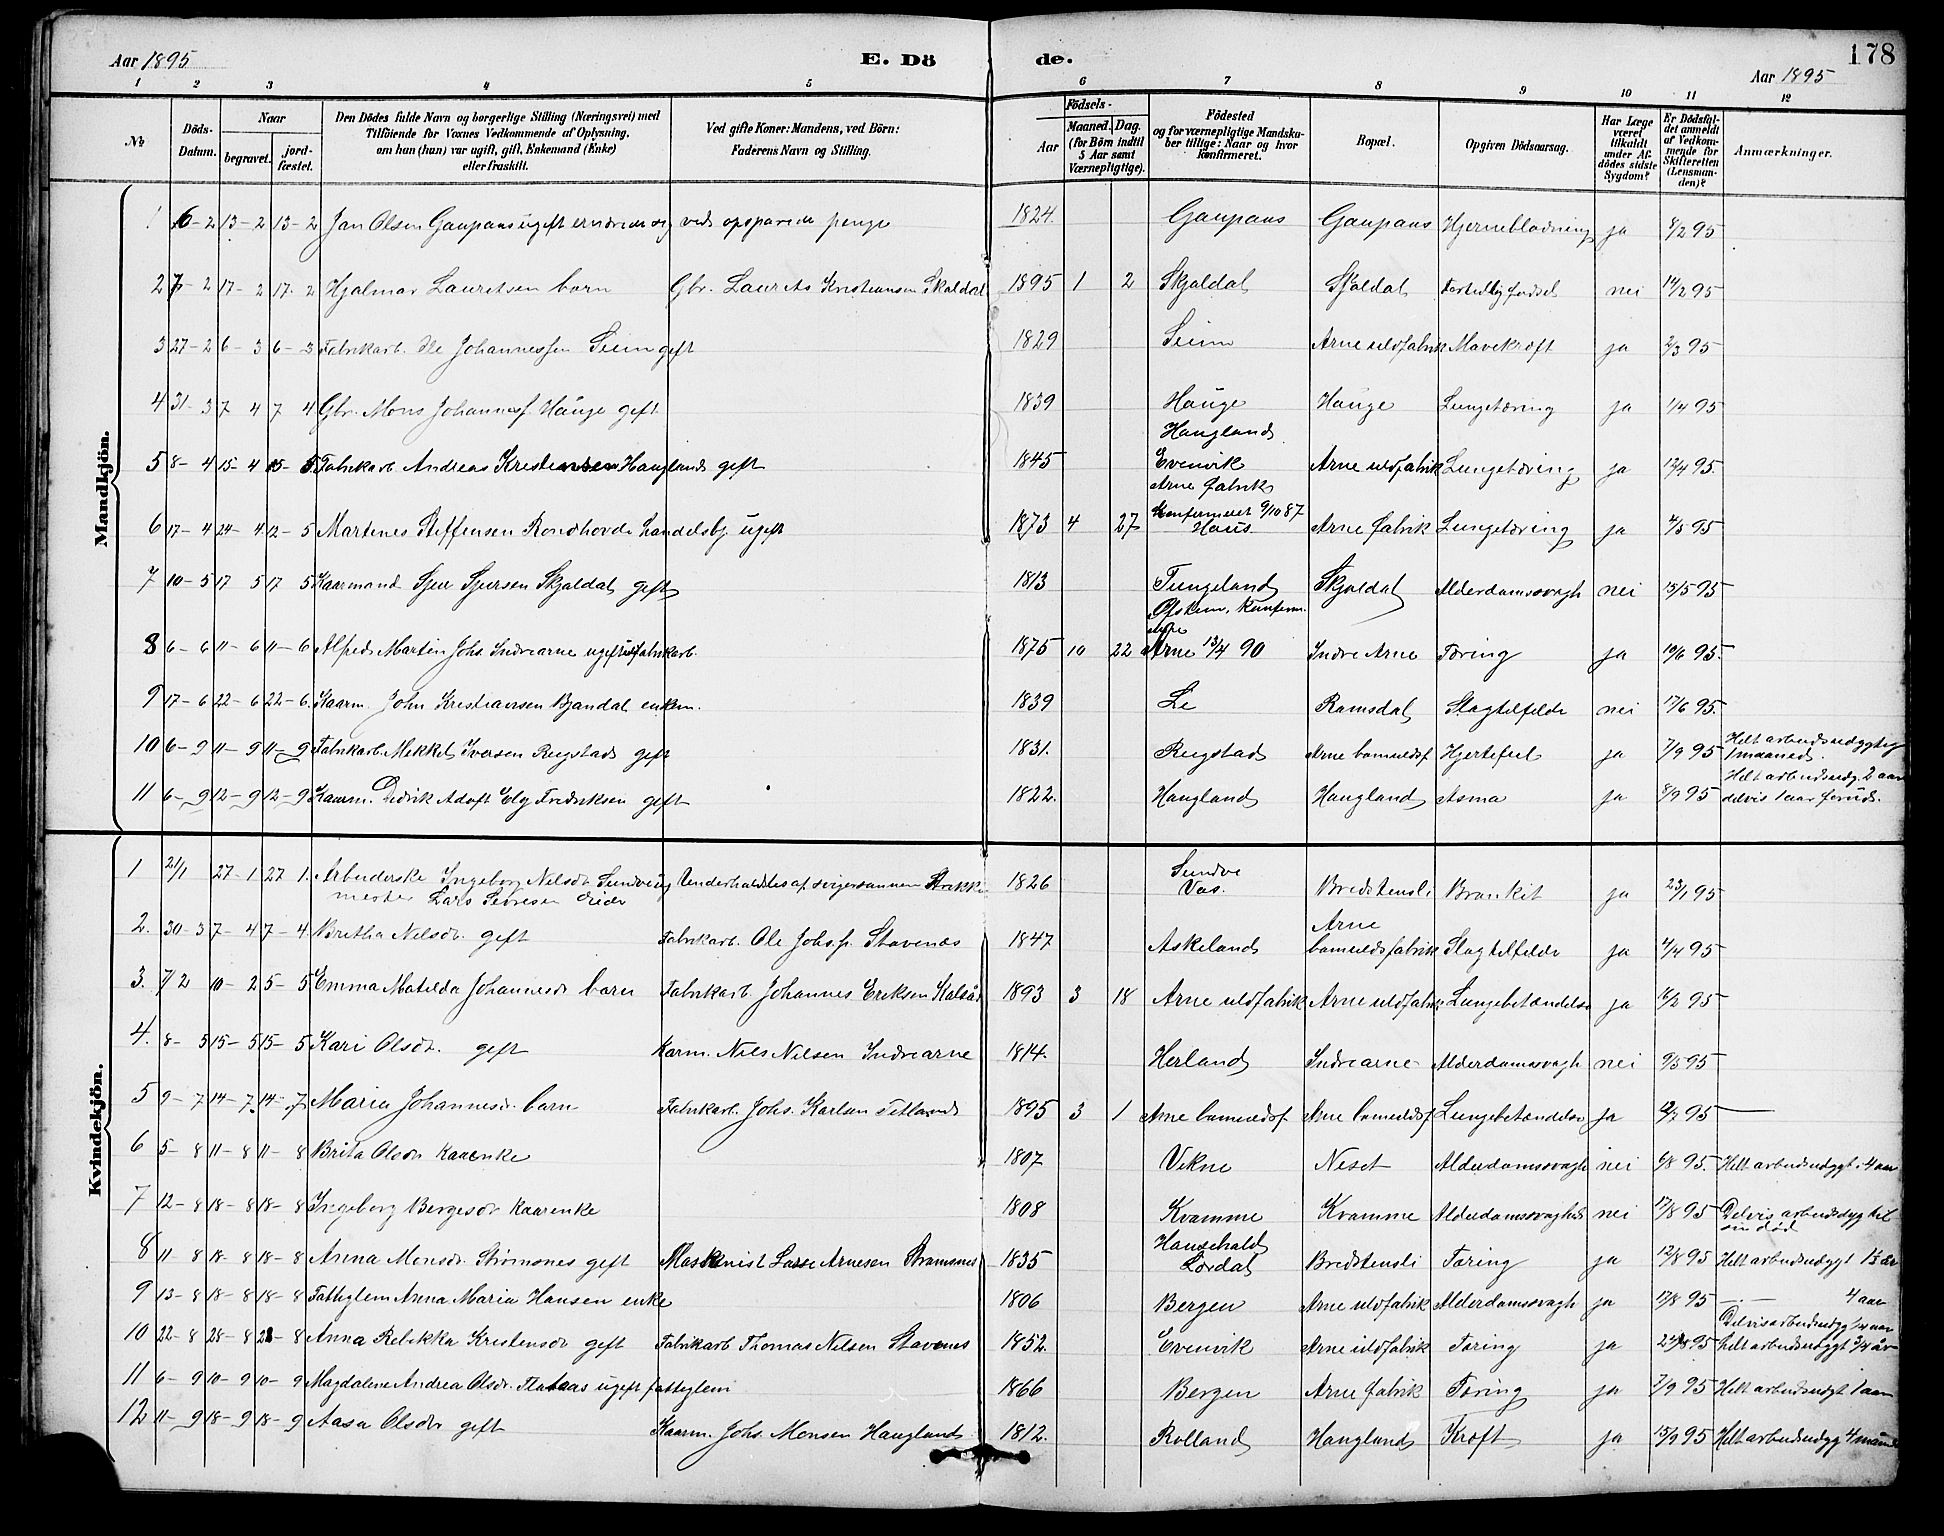 Aar 1895 E. Dö de. 178
Aar 1895
1 2 3 4 5 6 7 8 9 10 11 12
№
Döds-Datum.
Naar
begravet.
jord-fæstet.
Den Dödes fulde Navn og borgerlige Stilling (Næringsvei) med
Tilföiende for Voxnes Vedkommende af Oplysning,
om han (hun) var ugift, gift, Enkemand (Enke)
eller fraskilt.
Ved gifte Koner: Mandens, ved Börn:
Faderens Navn og Stilling.
Födsels-
Aar
Maaned. Dag.
(for Börn indtil
5 Aar samt
Værnepligtige).
Födested
og for værnepligtige Mandska-
ber tillige: Naar og hvor
konfirmeret.
Bopæl.
Opgiven Dödsaarsag.
Har Læge
været
tilkaldt
under Af-
dödes sidste
Sygdom?
Er Dödsfal-
det anmeldt
af Vedkom-
mende for
Skifteretten
(Lensman-
den)?
Anmærkninger.
Mandkjön.
1 6-2 13-2 13-2 Jan Olsen Gaupaas ugift ernærede sig ved opsparede penge 1824. Gaupaas Gaupaas Hjerneblødning ja 8/2 95
2 7-2 17-2 17-2 Hjalmar Lauritsen barn Gbr. Laurits Kristiansen Skaldal 1895 1 2 Skjaldal Skjaldal Fortidlig fødsel nei 14/2 95
3 27-2 6-3 6-3 Fabrikarb. Ole Johannessen Seim gift 1829 Seim Arne uldfabrik Mavekræft ja 2/3 95
4 31-3 7 4 7 4 Gbr. Mons Johannesf. Hauge gift 1839 Hauge Hauge Lungetæring ja 1/4 95
5 8-4 15-4 15-5 Fabrikarb. Andreas Kristensen Haugland gift 1845 Haugland
Evenvik Arne uldfabrik Lungetæring ja 12/4 95.
6 17-4 24-4 12-5 Martenes Steffensen Rondhovde handelsbj. ugift 1873 4 27 Arne fabrik
Konfirmeret 9/10 87
Haus Arne fabrik Lungetæring ja 4/5 95
7 10-5 17 5 17 5 Kaarmand Sjur Sjursen Skjaldal gift 1813 Tungeland Skjaldal Alderdomssvagh nei 15/5 95
8 6-6 11-6 11-6 Alfred Martin Johs. Indrearne ugift uldfabrikarb. 1875 10 22
Arne 13/4 90 Indre Arne Tæring ja 10/6 95.
9 17-6 22-6 22-6. Kaarm. John Kristiansen Bjandal enkem. 1839 Li Ramsdal Slagtilfælde nei 17/6 95.
10 6-9 11-9 11-9 Fabrikarb. Mikkel Iversen Rugstad gift 1831. Rugstad Arne bomuldsf Hjertefeil ja 7/9 95 Helt arbeidsudygtig
1 maaned.
11 6-9 12-9 12-9 Kaarm. Didrik Adolf Ely Fredriksen gift 1822. Haugland Haugland Asma ja 8/9 95 Helt arbeidsudg. 2 aar
delvis 1 aar forud.
Kvindekjön.
1 21/1 27-1 27 1. Arbeiderske Ingeborg Nilsdr. Sundve ug Underholdtes af svigersønnen Strikke
mester Lars Sjursen 1826 Sundve
Vos. Bredstensli Bronkit ja 23/1 95
2. 30-3 7-4 7-4 Britha Nilsdr. gift Fabrikarb. Ole Johs.f. Stavenæs 1847 Askeland Arne
bomuldsfabrik Slagtilfælde ja 4/4 95
3. 7 2 10-2 5-5 Emma Matilda Johannesdr barn Fabrikarb Johannes Eriksen Kalsås 1893 3 18 Arne uldfabrik Arne uldfabrik Lungebetændelse ja 8/2 95
4. 8-5 15-5 15-5 Kari Olsdr. gift Karm. Nils Nilsen Indrearne 1814. Herland Indrearne Alderdomssvagh nei 9/5 95
5 9-7 14-7 14-7 Maria Johannesdr. barn Fabrikarb. Johs. Karlsen Tetland 1895 3 1 Arne bomuldsf Arne bomuldsf Lungebetændelse ja 12/7 95
6 5-8 11-8 11-8 Brita Olsdr Kaarenke 1807 Vikne Neset Alderdomssvagh nei 6/8 95. Helt arbeidsudygt. 4 aar
7 12-8 18-8 18-8 Ingeborg Bergesdr. Kaarenke 1808 Kvamme Kvamme Alderdomssvaghed nei 17/8 95 Delvis arbeidsdyg til
sin død
8 11-8 18-8 18-8 Anna Monsdr. Strømsnes gift Maskinist Lasse Arnesen Stromsnes 1835
Lordal Bredstensli Tæring ja 12/8 95 Helt arbeidsudygt 1½ år
9 13-8 18-8 18-8 Fattiglem Anna Maria Hansen enke 1806 Bergen Arne uldfabrik Alderdomssvagh ja 17/8 95 —·— 4 aar
10 22-8 28-8 28-8 Anna Rebikka Kristensdr gift Fabrikarb Thomas Nilsen Stavenes 1852. Evenvik Arne uldfabrik Tæring ja 24/8 95 Delvis arbeidsudyg 1/4 aar
helt arbeidsudygt 3/4 år
11 6-9 10-9 10-9 Magdalene Andrea Olsdr. ugift fattiglem 1866 Bergen Arne fabrik Tæring ja 7/9 95 Helt arbeidsudygt 1 aar
12 11-9 18-9 18-9 Aasa Olsdr gift Kaarm. Johs. Monsen Haugland 1812. Rolland Haugland Kræft ja 15/9 95 Helt arbeidsudyg 4 måned